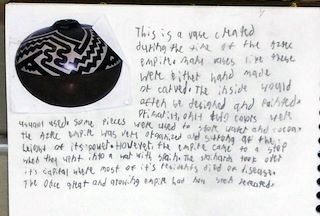 This is a vase created
during the time of the Aztec
empire. Many vases like these
were either hand made
or carved. The inside would
often be designed and painted.
only two colors were
usually used. Some pieces were used to store water and cocoa.
The Aztec empire was very organized and strong at the
height of its power. However, the empire came to a stop
when they went into a war with Spain. The Spaniards took over
it's capital where most of it's residents died of disease.
The once great and growing empire had now been defeated.